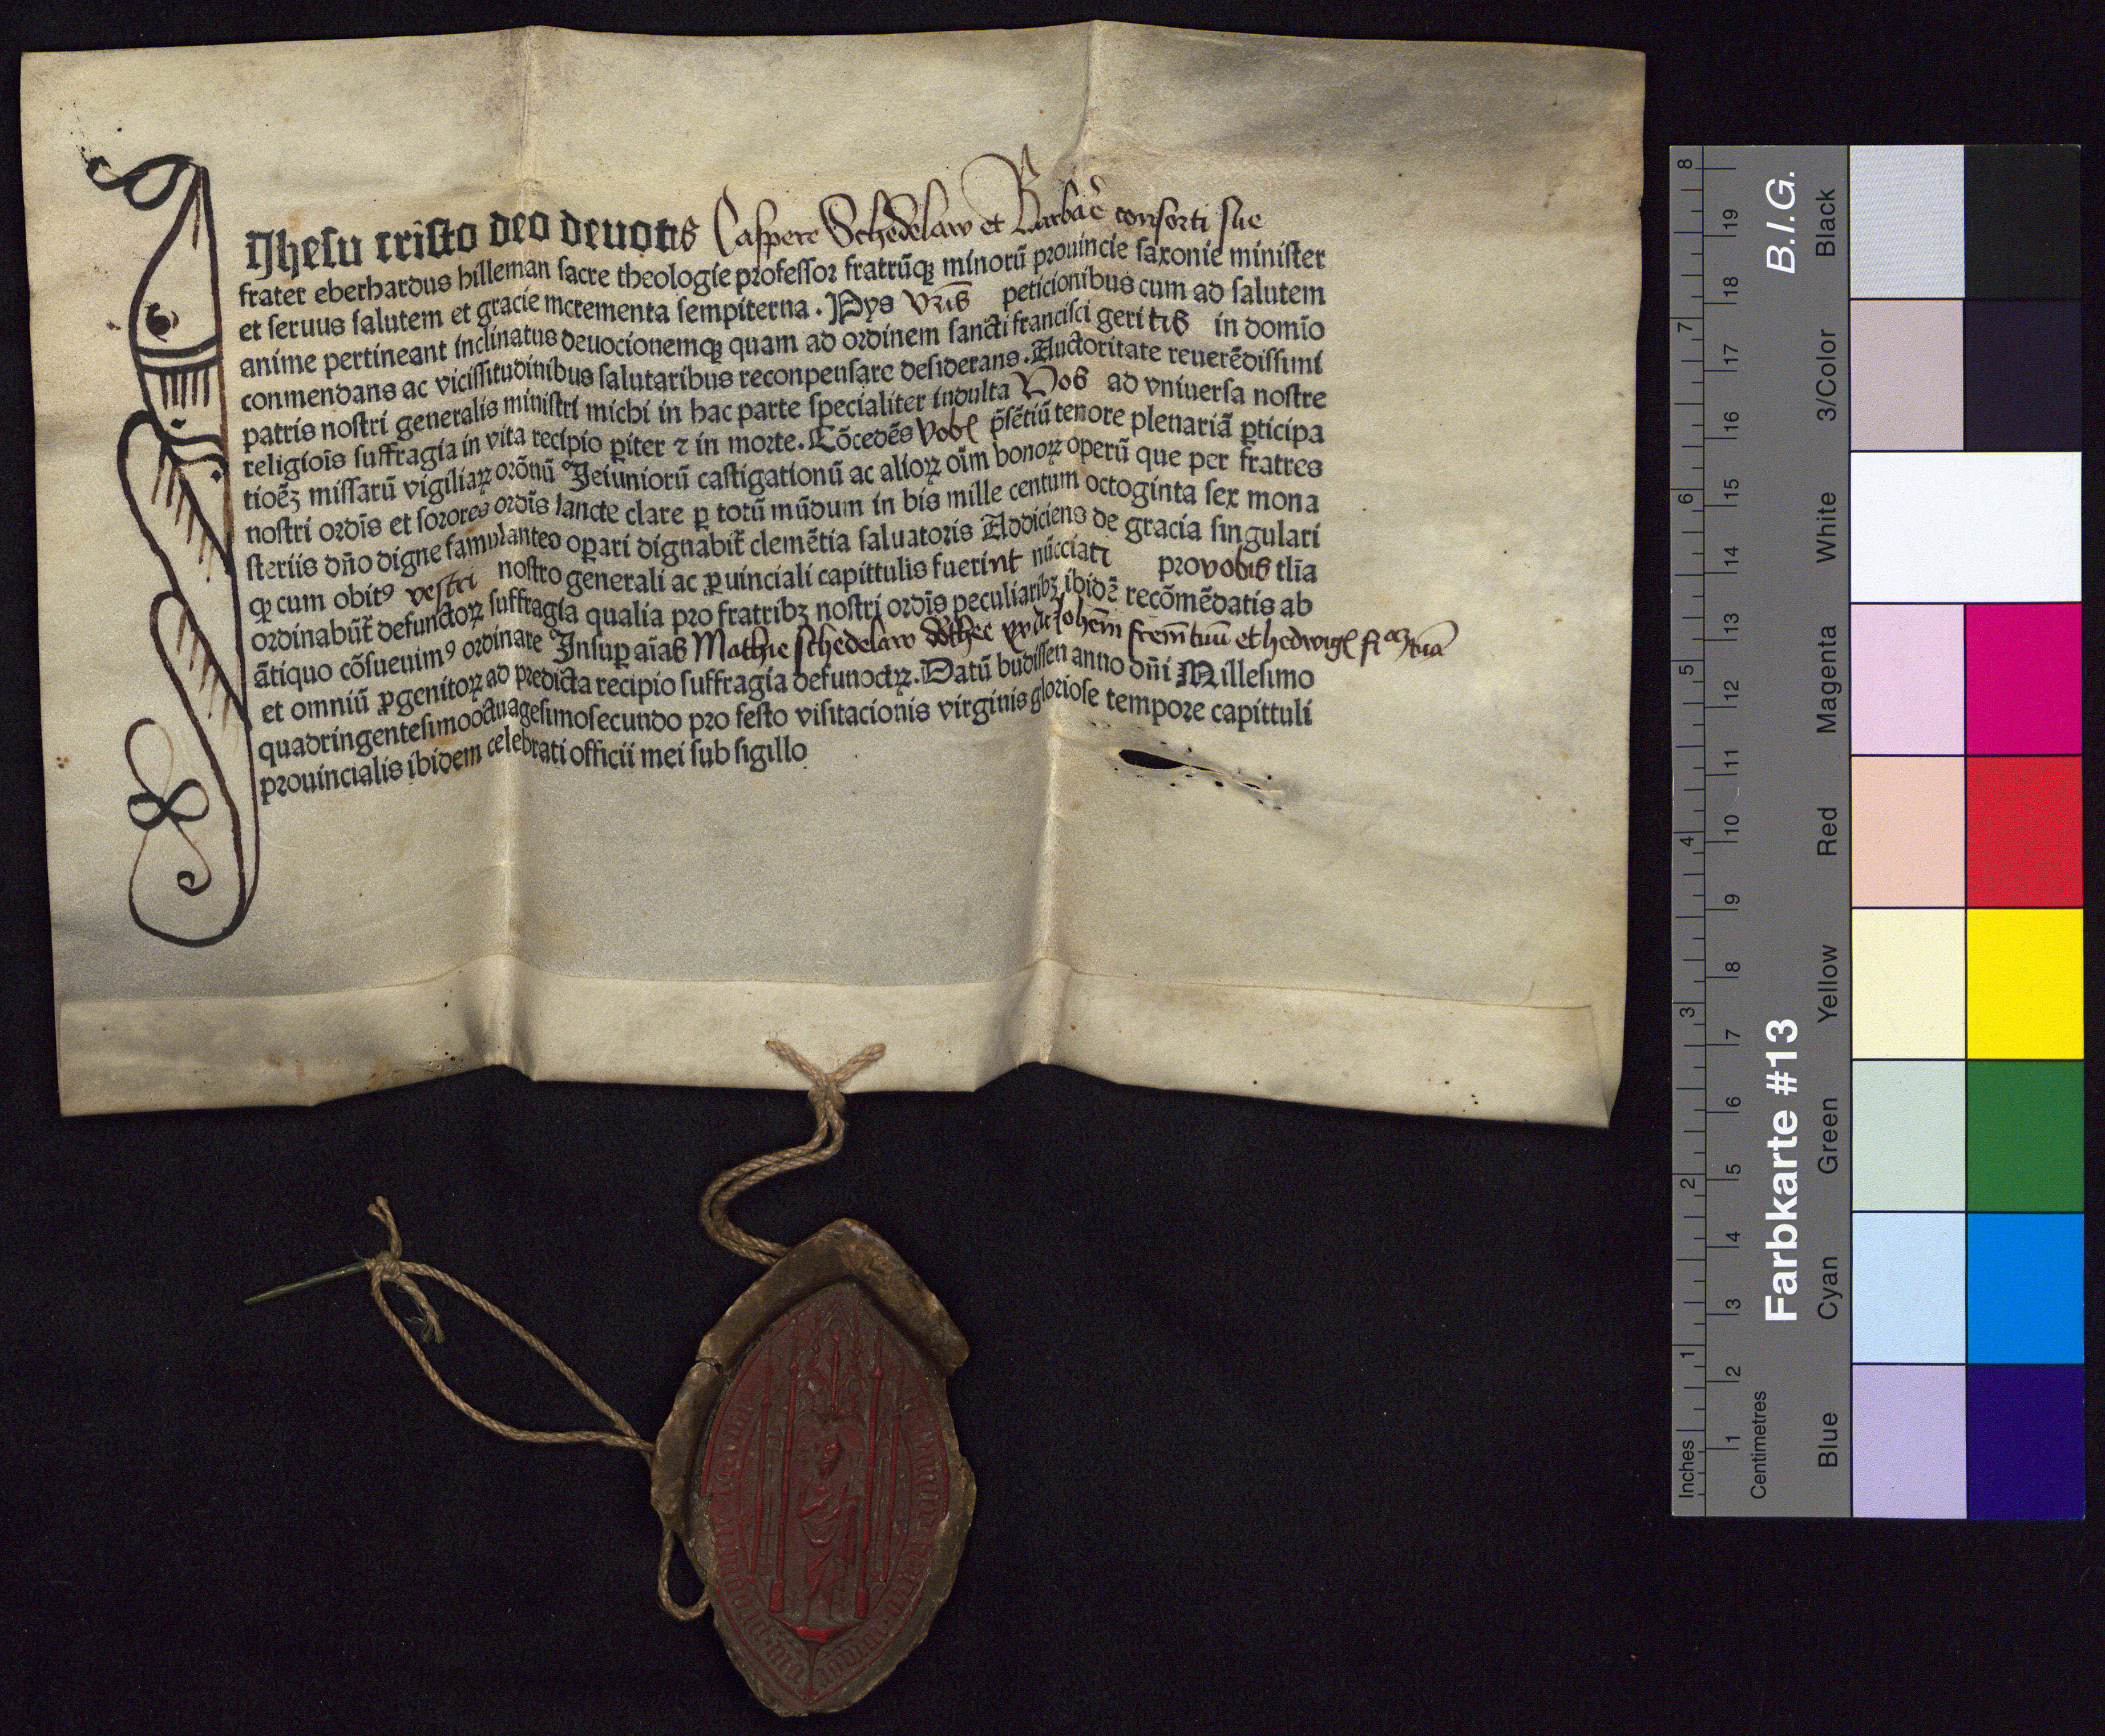 Jhesu cristo deo deuotis Caspere Schedelaw et Barbare consorti sue
frater eberhardus hilleman sacre theologie professor fratrūqꝫ minorū prouincie saxonie minister
et seruus salutem et gracie incrementa sempiterna. Pys vr̄is peticionibus cum ad salutem
anime pertineant inclinatus deuocionemqꝫ quam ad ordinem sancti francisci geritis in domīo
conmendans ac vicissitudinibus salutaribus reconpensare desiderans. Auctoritate reuerēdissimi
patris nostri generalis ministri michi in hac parte specialiter indulta Vos ad vniuersa nostre
religiōis suffragia in vita recipio ꝑiter ⁊ in morte. Cōcedēs vobꝭ p̄sētiū tenore plenariā ꝑticipa
tioēꝫ missarū vigiliaꝝ orōnū Jeiuniorū castigationū ac alioꝝ oīm bonoꝝ operū que per fratres
nostri ordīs et sorores ordīs sancte clare ꝑ totū mūdum in bis mille centum octoginta sex mona
steriis dn̄o digne famulanteo oꝑari dignabit̄ clemētia saluatoris Addiciens de gracia singulari
ꝙ cum obitꝰ vestri nostro generali ac ꝓuinciali capittulis fuerint nūcciati pro vobis tlīa
ordinabūt̄ defunctoꝝ suffragia qualia pro fratribꝫ nostri ordīs peculiaribꝫ ibidē recōmēdatis ab
ātiquo cōsueuimꝰ ordinare Jnsuꝑ aīas Mathie schedelaw et hedwigꝭ
et omniū ꝓgenitoꝝ ad predicta recipio suffragia defunctoꝝ. Datū budissen anno dn̄i Millesimo
quadringentesimooctuagesimosecundo pro festo visitacionis virginis gloriose tempore capittuli
prouincialis ibidem celebrati officii mei sub sigillo
Inches 1 2 3 4 5 6 7 8
Centimetres 1 2 3 4 5 6 7 8 9 10 11 12 13 14 15 16 17 18 19
Farbkarte #13 B.I.G.
Blue Cyan Green Yellow Red Magenta White 3/Color Black